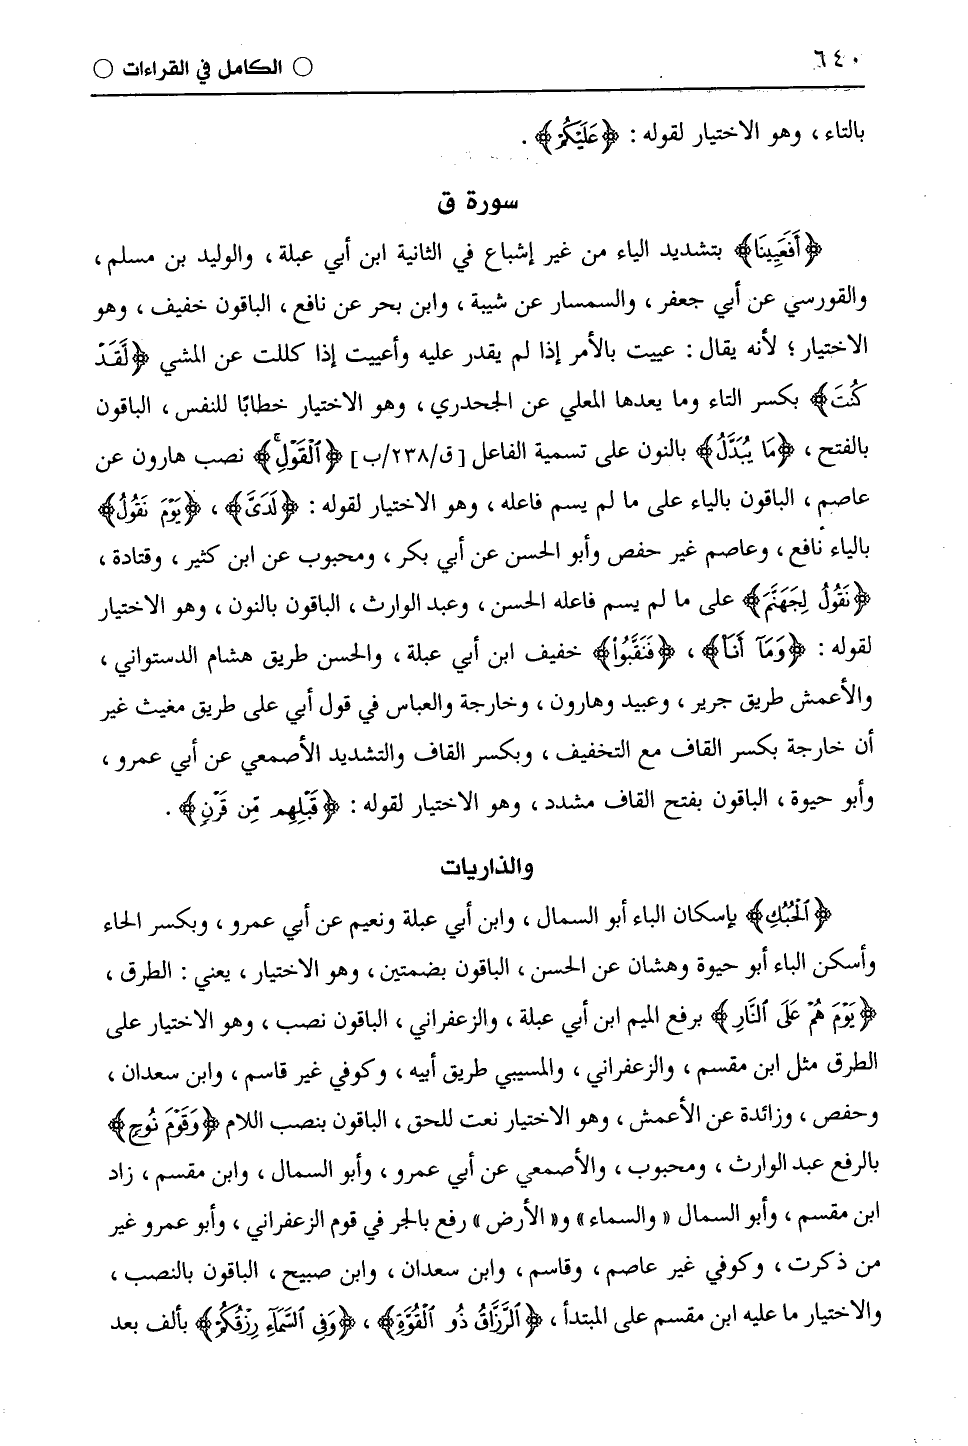 ٦٤٠
○ الكامل في القراءات ○
بالتاء ، وهو الاختيار لقوله : ﴿عَلَيْكُمْ﴾ .
سورة ق
﴿أَفَعَيِينَا﴾ بتشديد الياء من غير إشباع في الثانية ابن أبي عبلة ، والوليد بن مسلم ،
والقورسي عن أبي جعفر ، والسمسار عن شيبة ، وابن بحر عن نافع ، الباقون خفيف ، وهو
الاختيار ؛ لأنه يقال : عييت بالأمر إذا لم يقدر عليه وأعييت إذا كللت عن المشي ﴿لَّقَدْ
كُنتَ﴾ بكسر التاء وما يعدها المعلي عن الجحدري ، وهو الاختيار خطابًا للنفس ، الباقون
بالفتح ، ﴿مَا يُبَدَّلُ﴾ بالنون على تسمية الفاعل [ق/٢٣٨/ب] ﴿ٱلْقَوْلِ﴾ نصب هارون عن
عاصم ، الباقون بالياء على ما لم يسم فاعله ، وهو الاختيار لقوله : ﴿لَدَىَّ﴾ ، ﴿يَوْمَ نَقُولُ﴾
بالياء نافع ، وعاصم غير حفص وأبو الحسن عن أبي بكر ، ومحبوب عن ابن كثير ، وقتادة ،
﴿نَقُولُ لِجَهَنَّمَ﴾ على ما لم يسم فاعله الحسن ، وعبد الوارث ، الباقون بالنون ، وهو الاختيار
لقوله : ﴿وَمَآ أَنَا۠﴾ ، ﴿فَنَقَّبُوا۟﴾ خفيف ابن أبي عبلة ، والحسن طريق هشام الدستواني ،
والأعمش طريق جرير ، وعبيد وهارون ، وخارجة والعباس في قول أبي على طريق مغيث غير
أن خارجة بكسر القاف مع التخفيف ، وبكسر القاف والتشديد الأصمعي عن أبي عمرو ،
وأبو حيوة ، الباقون بفتح القاف مشدد ، وهو الاختيار لقوله : ﴿قَبْلِهِم مِّن قَرْنٍ﴾ .
والذاريات
﴿ٱلْحُبُكِ﴾ بإسكان الباء أبو السمال ، وابن أبي عبلة ونعيم عن أبي عمرو ، وبكسر الحاء
وأسكن الباء أبو حيوة وهشان عن الحسن ، الباقون بضمتين ، وهو الاختيار ، يعني : الطرق ،
﴿يَوْمَ هُمْ عَلَى ٱلنَّارِ﴾ برفع الميم ابن أبي عبلة ، والزعفراني ، الباقون نصب ، وهو الاختيار على
الطرق مثل ابن مقسم ، والزعفراني ، والمسيبي طريق أبيه ، وكوفي غير قاسم ، وابن سعدان ،
وحفص ، وزائدة عن الأعمش ، وهو الاختيار نعت للحق ، الباقون بنصب اللام ﴿وَقَوْمَ نُوحٍ﴾
بالرفع عبد الوارث ، ومحبوب ، والأصمعي عن أبي عمرو ، وأبو السمال ، وابن مقسم ، زاد
ابن مقسم ، وأبو السمال « والسماء » و« الأرض » رفع بالجر في قوم الزعفراني ، وأبو عمرو غير
من ذكرت ، وكوفي غير عاصم ، وقاسم ، وابن سعدان ، وابن صبيح ، الباقون بالنصب ،
والاختيار ما عليه ابن مقسم على المبتدأ ، ﴿ٱلرَّزَّاقُ ذُو ٱلْقُوَّةِ﴾ ، ﴿وَفِى ٱلسَّمَآءِ رِزْقُكُمْ﴾ بألف بعد